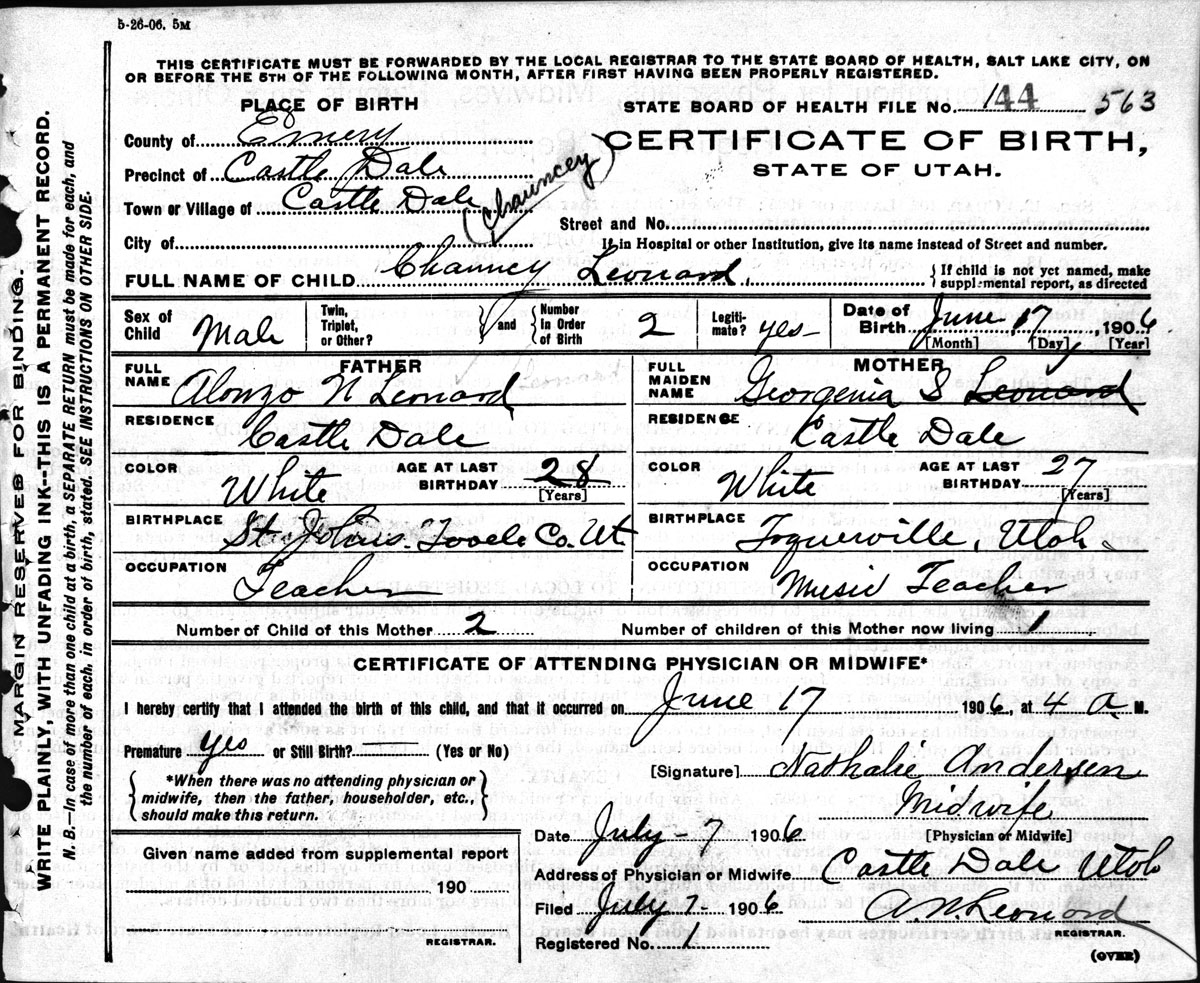 5-26-06. 5M
THIS CERTIFICATE MUST BE FORWARDED BY THE LOCAL REGISTRAR TO THE STATE BOARD OF HEALTH, SALT LAKE CITY, ON
OR BEFORE THE 5TH OF THE FOLLOWING MONTH, AFTER FIRST HAVING BEEN PROPERLY REGISTERED.
PLACE OF BIRTH
STATE BOARD OF HEALTH FILE No. 144 563
County of Emery
CERTIFICATE OF BIRTH,
Precinct of Castle Dale
STATE OF UTAH.
Town or Village of Castle Dale
(Chauncey)
Street and No.
City of
If in Hospital or other Institution, give its name instead of Street and number.
FULL NAME OF CHILD Chauncy Leonard,
{If child is not yet named, make supplemental report, as directed
Sex of Child Male
Twin, Triplet, or Other?
and
Number In Order of Birth 2
Legitimate? yes
Date of Birth June 17, 1906
[Month] [Day] [Year]
FATHER
FULL NAME Alonzo N Leonard
RESIDENCE Castle Dale
COLOR White
AGE AT LAST BIRTHDAY 28
[Years]
BIRTHPLACE St. Johns Tooele Co. Ut
OCCUPATION Teacher
MOTHER
FULL MAIDEN NAME Georgenia S Leonard
RESIDENCE Castle Dale
COLOR White
AGE AT LAST BIRTHDAY 27
[Years]
BIRTHPLACE Toquerville, Utah
OCCUPATION Music Teacher
Number of Child of this Mother 2
Number of children of this Mother now living 1
CERTIFICATE OF ATTENDING PHYSICIAN OR MIDWIFE*
I hereby certify that I attended the birth of this child, and that it occurred on June 17 1906, at 4 a M.
Premature yes or Still Birth? — (Yes or No)
{*When there was no attending physician or
midwife, then the father, householder, etc.,
should make this return.}
[Signature] Nathalie Andersen
Midwife
[Physician or Midwife]
Date July-7 1906
Given name added from supplemental report
190
REGISTRAR.
Address of Physician or Midwife Castle Dale Utah
Filed July 7- 1906
A.N. Leonard
REGISTRAR.
Registered No. 1
(OVER)
MARGIN RESERVED FOR BINDING.
WRITE PLAINLY, WITH UNFADING INK--THIS IS A PERMANENT RECORD.
N. B.—In case of more than one child at a birth, a SEPARATE RETURN must be made for each, and
the number of each, in order of birth, stated. SEE INSTRUCTIONS ON OTHER SIDE.